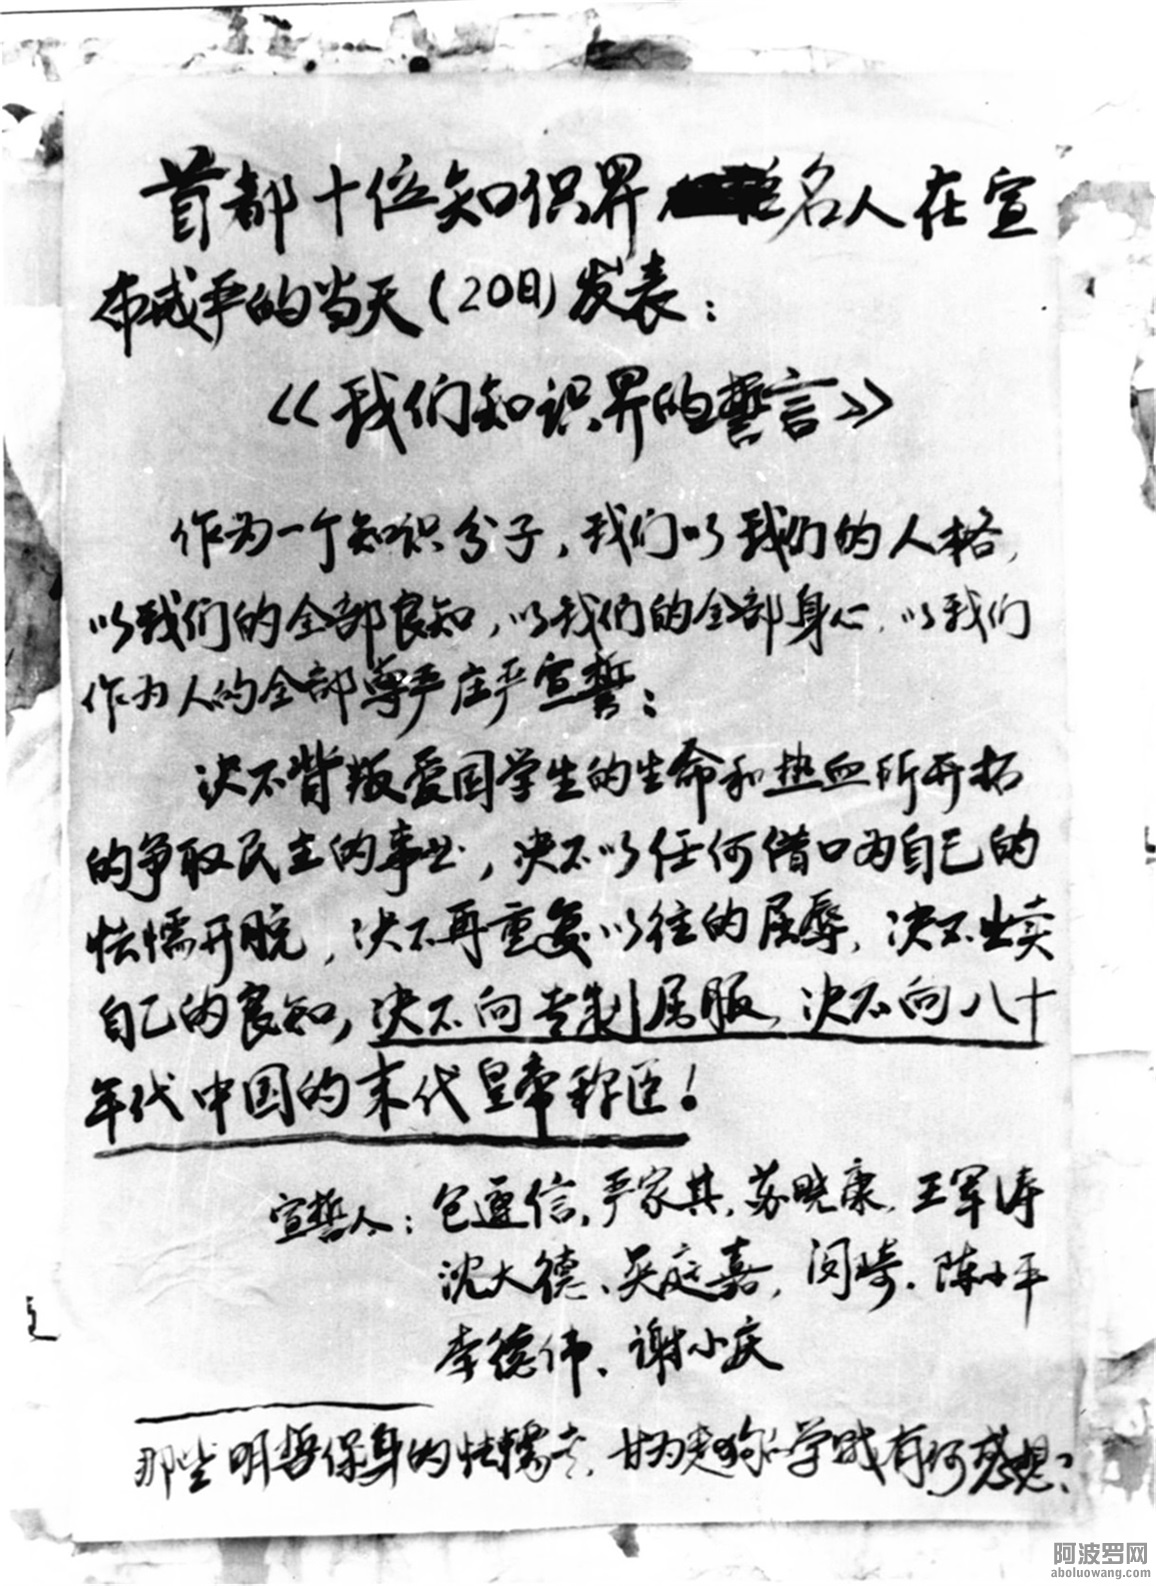 首都十位知识界名人在宣
布戒严的当天(20日)发表:
《我们知识界的誓言》
作为一个知识分子,我们以我们的人格,
以我们的全部良知,以我们的全部身心,以我们
作为人的全部尊严庄严宣誓:
决不背叛爱国学生的生命和热血所开拓
的争取民主的事业,决不以任何借口为自己的
怯懦开脱,决不再重复以往的屈辱,决不出卖
自己的良知,决不向专制屈服,决不向八十
年代中国的末代皇帝称臣!
宣誓人:包遵信,严家其,苏晓康,王军涛
沈大德、吴庭嘉,闵琦,陈小平
李德伟、谢小庆
那些明哲保身的怯懦者,甘为走狗的学贼有何感想?
阿波罗网
aboluowang.com